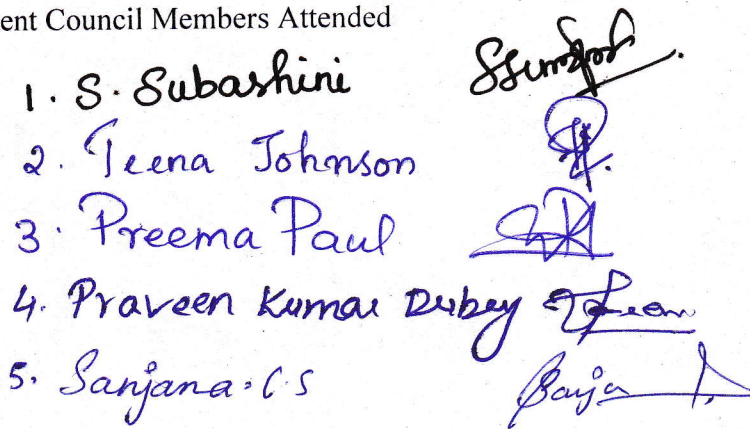 ent Council Members Attended
1. S. Subashini
2. Teena Johnson
3. Preema Paul
4. Praveen Kumar Dubey
5. Sanjana. C.S